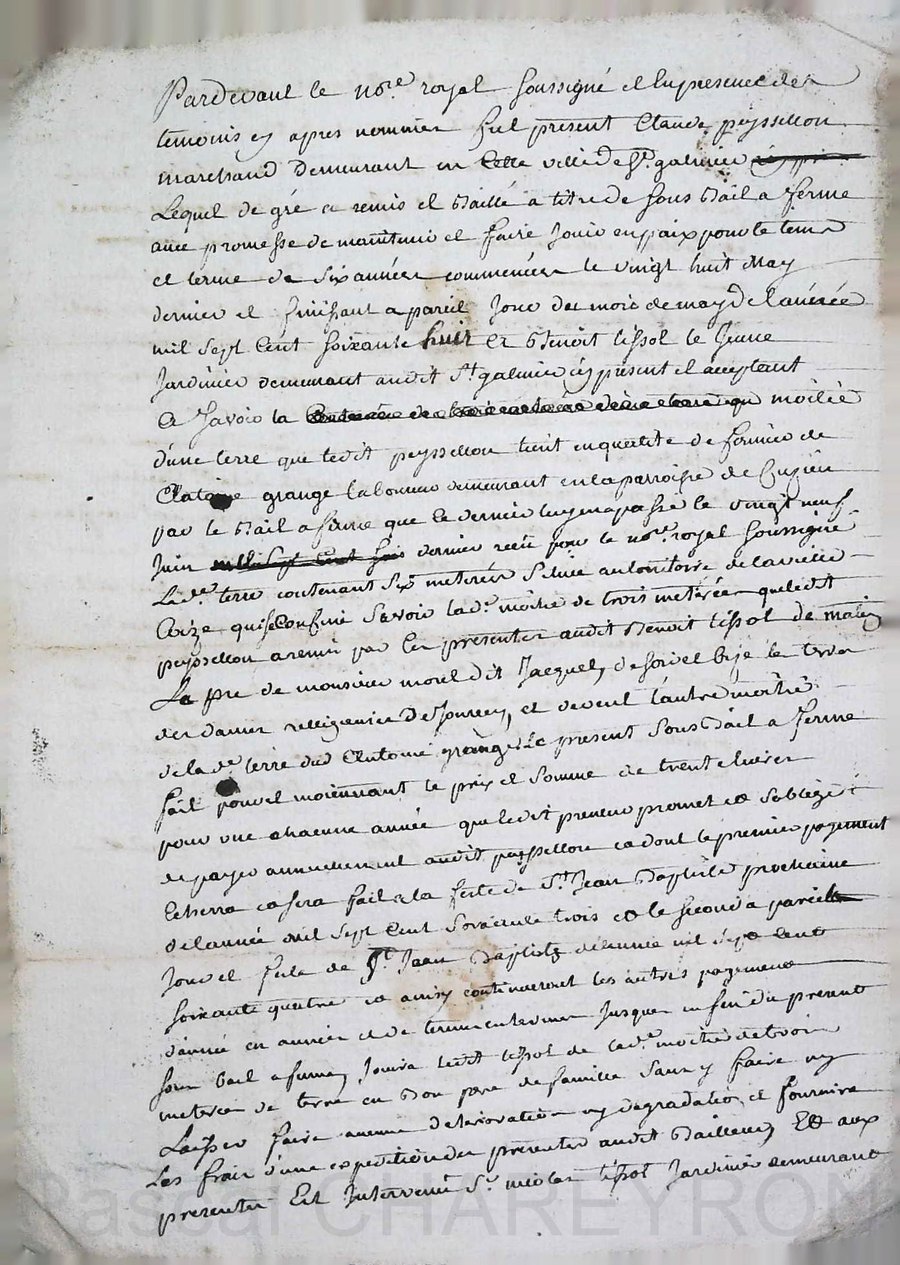 Pardevant le no.re royal soussigné et En presence des
temoins cy apres nommés fut present Claude peyssellon
marchand demeurant en cette ville de St. galmier
Lequel de gré a remis et Baillé a titre de sous Bail a ferme
avec promesse de maintenir et faire Jouir en paix pour le tems
et terme de six années commencées le vingt huit May
dernier et finissant a pareil Jour du mois de may de l'année
mil sept Cent soixante huit a Benoit tissot le Jeune
Jardinier demeurant audit St. galmier cy present et acceptant
A Savoir la moitiée
d'une terre que ledit peyssellon tient en qualité de fermier de
Antoine grange laboureur demeurant en la parroisse de Cuzieu
par le Bail a ferme que ce dernier luy en a passé le vingt neuf
Juin dernier reçu par le no.re royal soussigné
Lad.te terre contenant six meterées Située au territoire de la vielle
qui se Confine Savoir lad. moitié de trois meterées que ledit
peyssellon a remis par Ces presentes audit Benoit tissot de matin
Le pre de monsieur morel dit Jacquet, de soir et bize les terres
des dames relligieuses De Jourcey, et devent l'autre moitié
de lad.te terre dud Antoine grange Le present Sous Bail a ferme
fait pour et moiennant le prix et somme de trente livres
pour une chacune année que ledit preneur promet et s'oblige
de payer annuellement audit peyssellon ça dont le premier payement
Echerra et sera fait a la feste de St. Jean Baptiste prochaine
de l'année mil sept Cent soixante trois et le second a pareil
Jour et feste de St. Jean Baptiste de l'année mil sept cent
soixante quatre et ainsy continueront les autres payements
d'année en année et de termes en termes Jusques en fin du present
sous bail a ferme, Jouira ledit tissot de lad.te moitié de trois
meterées de terre en Bon pere de famille sans y faire ny
Laisser faire aucune deterioration ny degradation, et fournira
Les frais d'une expedition des presentes audit Bailleur, Et aux
presentes Est Intervenu Sr. nicolas tissot Jardinier demeurant
Pascal CHAREYRON